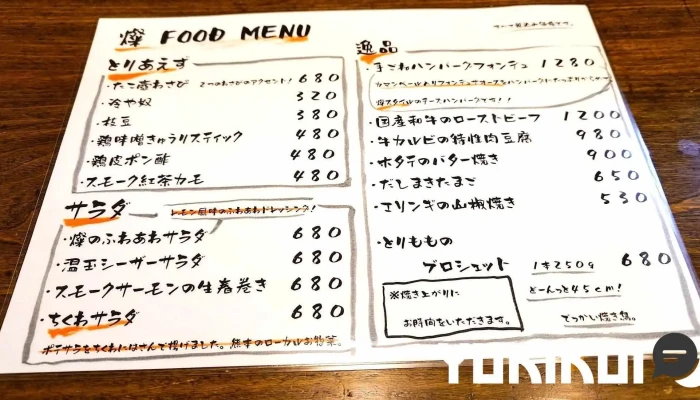 燦 FOOD MENU
すべて税込み価格です。
とりあえず
・たこ唐わさび 2つのわさびのアクセント! 680
・冷や奴 320
・枝豆 380
・鶏味噌きゅうりスティック 480
・鶏皮ポン酢 480
・スモーク紅茶カモ 480
サラダ レモン風味のふわあわドレッシング!
・燦のふわあわサラダ 680
・温玉シーザーサラダ 680
・スモークサーモンの生春巻き 680
・ちくわサラダ 680
ポテサラをちくわにはさんで揚げました。熊本のローカルお惣菜。
逸品
・手ごねハンバーグフォンデュ 1280
カマンベール入りフォンデュチーズをハンバーグにたっぷりからめて
燦スタイルのチーズハンバーグです!!
・国産和牛のローストビーフ 1200
・牛カルビの特性肉豆腐 980
・ホタテのバター焼き 900
・だしまきたまご 650
・エリンギの山椒焼き 530
・とりももの
ブロシェット 1本250g 680
どーんっと45cm!
でっかい焼き鳥。
※焼き上がりに
お時間をいただきます。
YUKIKO